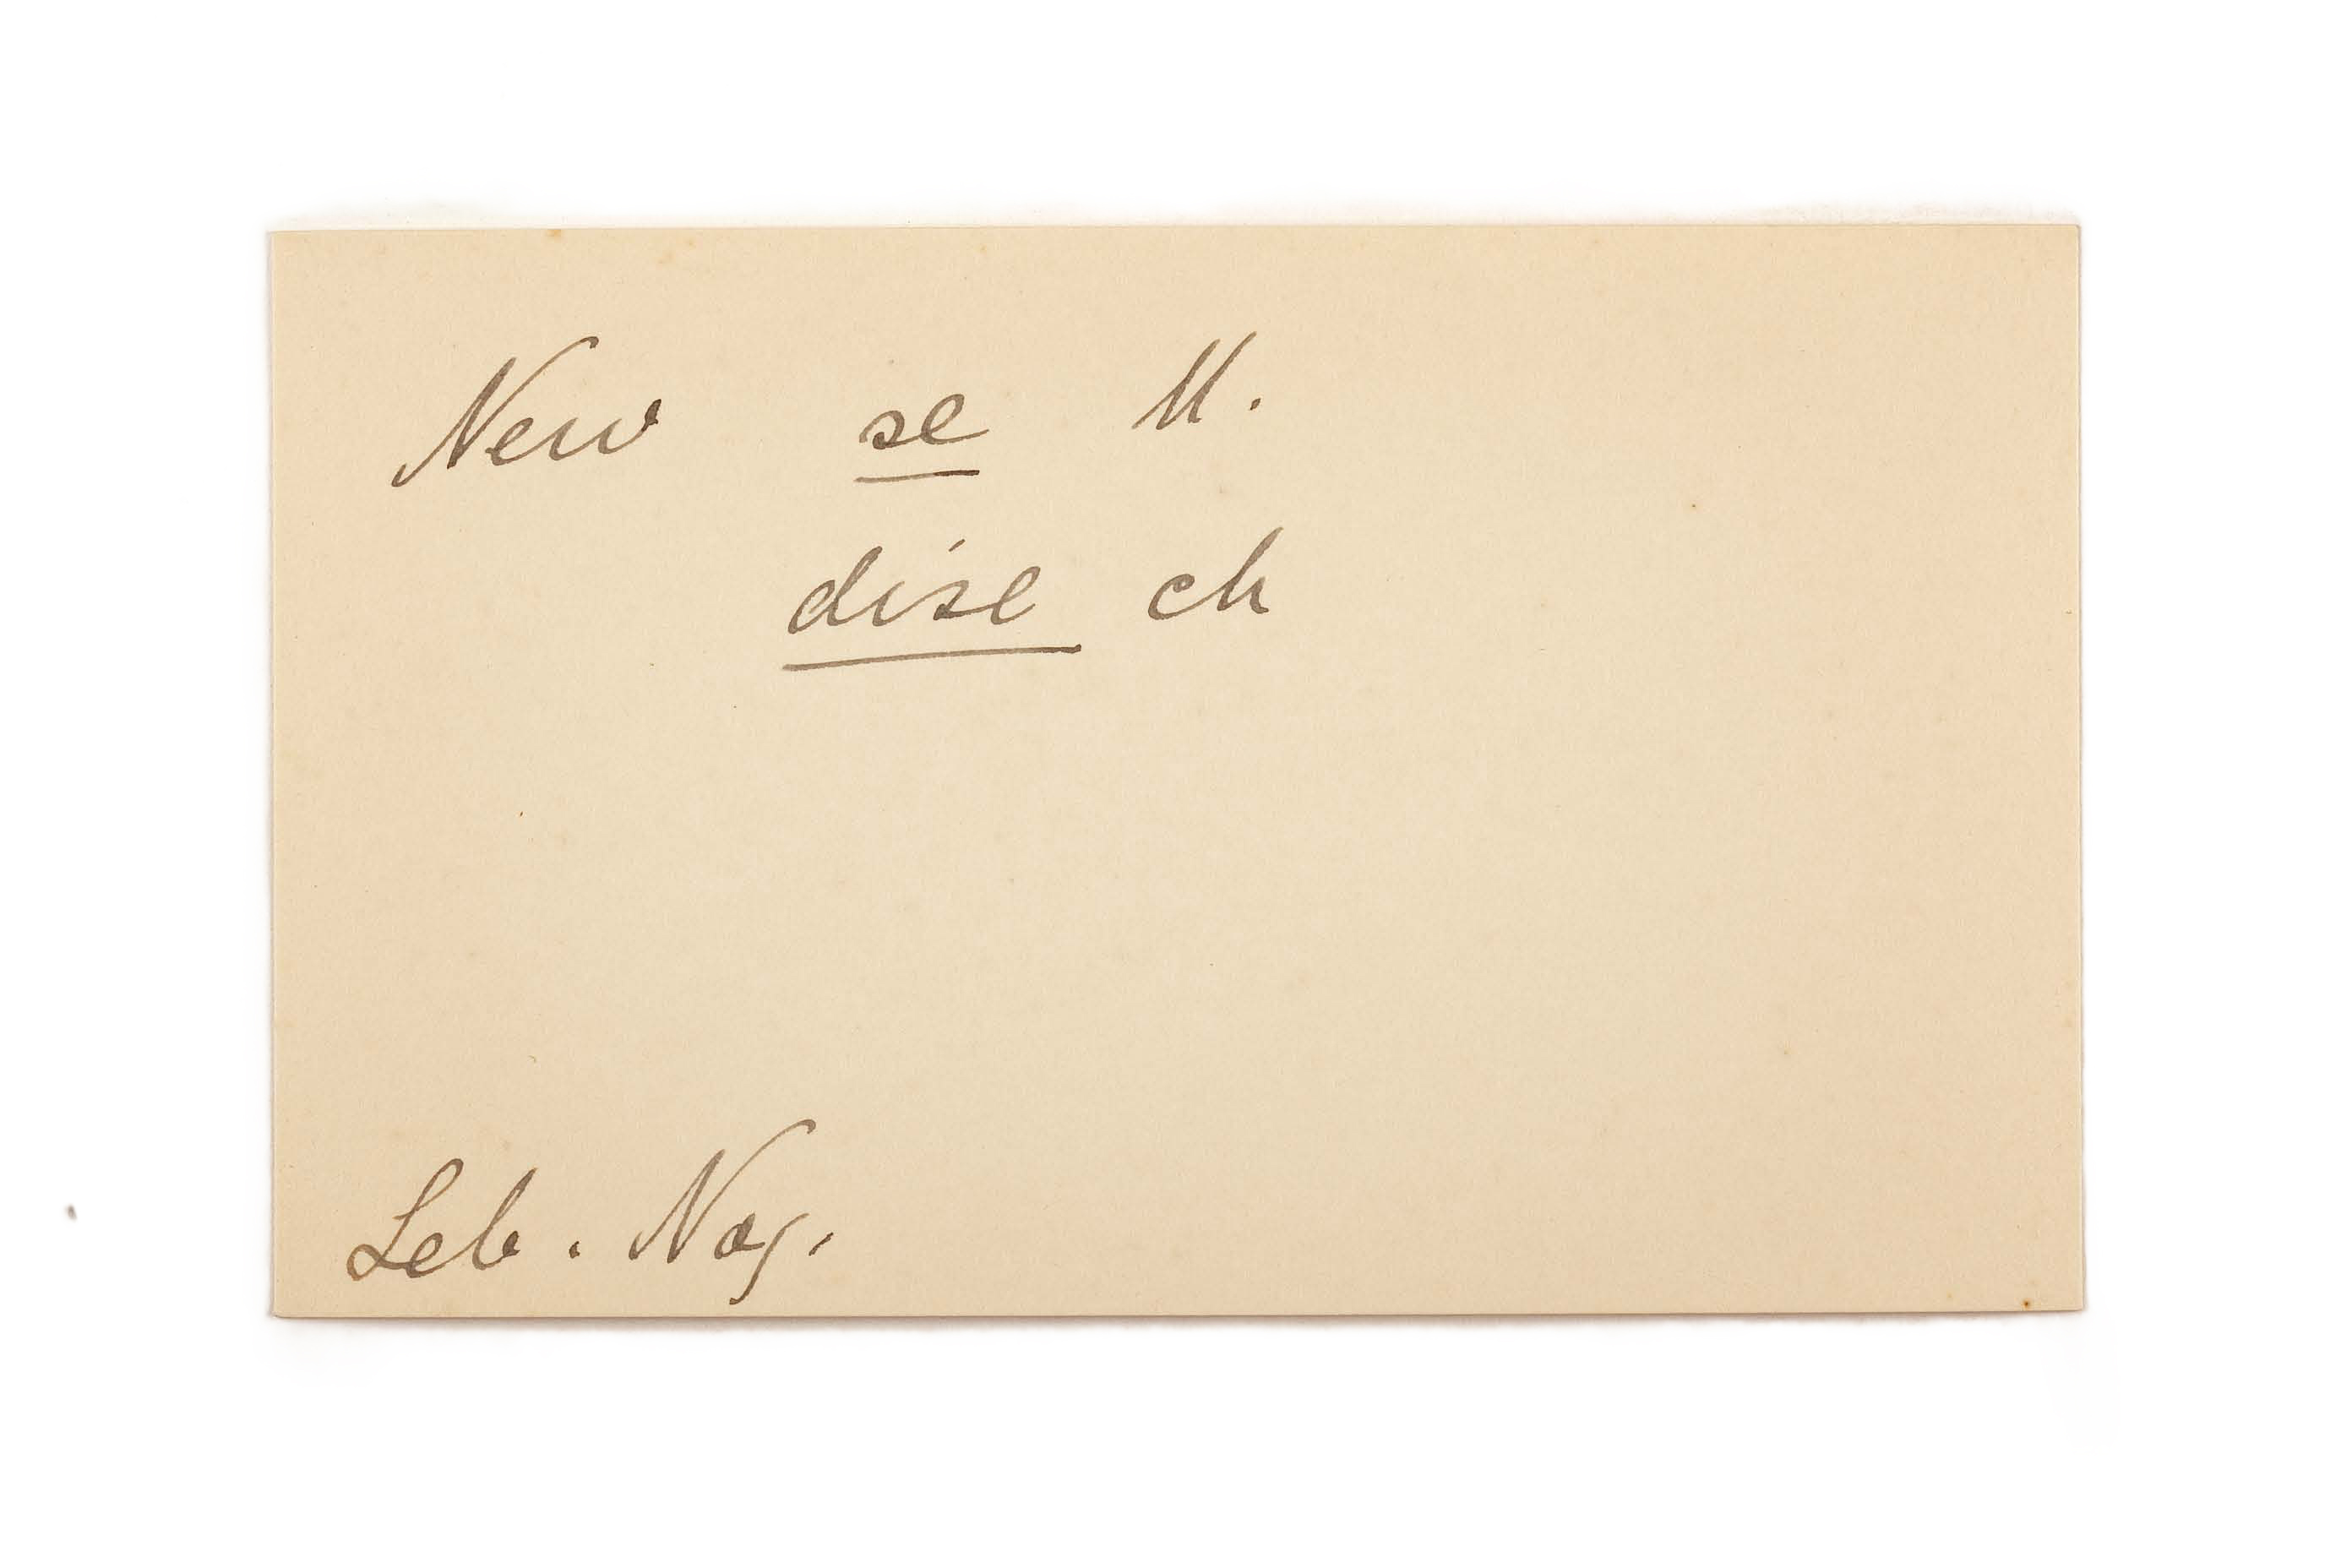 New se M.
dise ch
Leb. Nag.